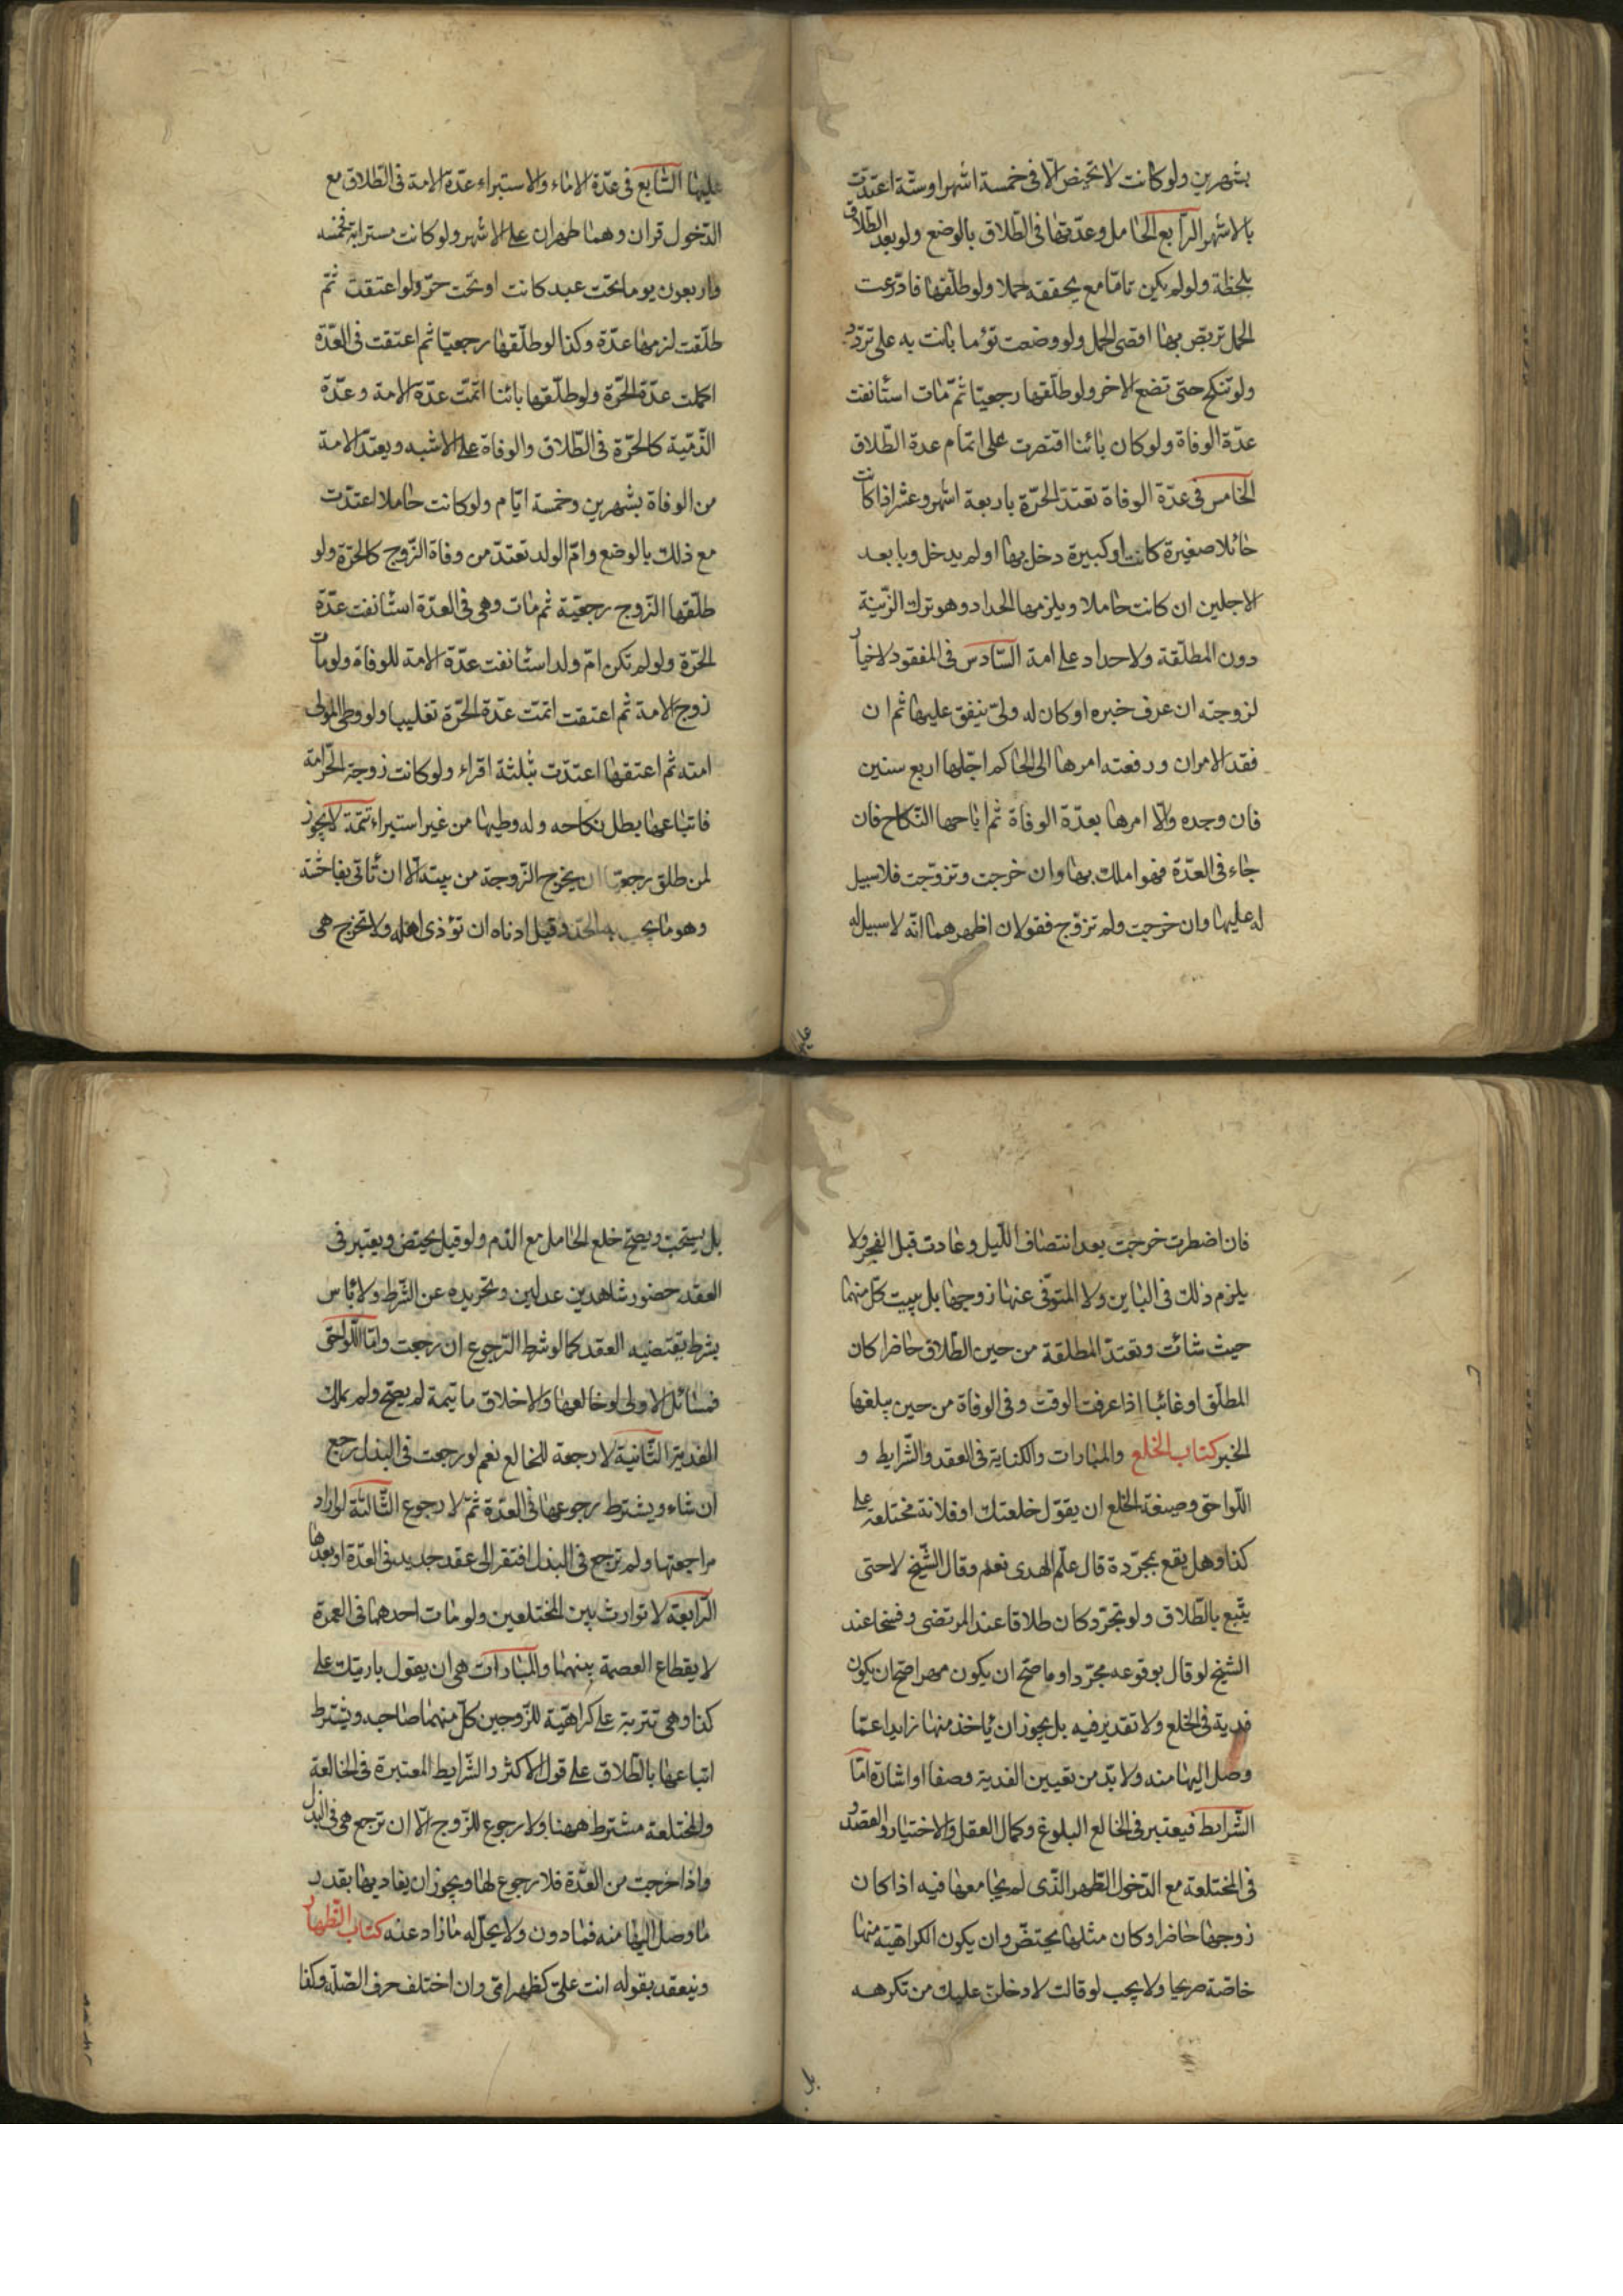 بشهرين ولو كانت لا تحيض الا فى خمسة اشهر اوستة اعتدت
بالاشهر الرابع الحامل وعدتها فى الطلاق بالوضع ولو بعد الطلاق
بلحظة ولو لم يكن تاما مع يحققه حملا ولو طلقها فادعت
الحمل تربص بها اقصى الحمل ولو وضعت تؤما بانت به على تردد
ولو تنكح حتى تضع الاخر ولو طلقها رجعيا ثم مات استانفت
عدة الوفاة ولو كان بائنا اقتصرت على اتمام عدة الطلاق
الخامس فى عدة الوفاة تعتد الحرة باربعة اشهر وعشر اذا كانت
حائلا صغيرة كانت او كبيرة دخل بها او لم يدخل وبابعد
الاجلين ان كانت حاملا ويلزمها الحداد وهو ترك الزينة
دون المطلقة ولا حداد على امة السادس فى المفقود لا خيار
لزوجته ان عرف خبره او كان له ولى ينفق عليها ثم ان
فقد الامران ورفعته امرها الى الحاكم اجلها اربع سنين
فان وجده والا امرها بعدة الوفاة ثم اباحها النكاح فان
جاء فى العدة فهو املك بها وان خرجت وتزوجت فلا سبيل
له عليها وان خرجت ولم تزوج فقولان اظهرهما انه لا سبيل له
عليها
عليها السابع فى عدة الاماء والاستبراء عدة الامة فى الطلاق مع
الدخول قران وهما طهران على الاشهر ولو كانت مسترابة فخمسه
واربعون يوما تحت عبد كانت او تحت حر ولو اعتقت ثم
طلقت لزمها عدة وكذا لو طلقها رجعيا ثم اعتقت فى العدة
اكملت عدة الحرة ولو طلقها بائنا اتمت عدة الامة وعدة
الذمية كالحرة فى الطلاق والوفاة على الاشبه ويعتد الامة
من الوفاة بشهرين وخمسة ايام ولو كانت حاملا اعتدت
مع ذلك بالوضع وام الولد تعتد من وفاة الزوج كالحرة ولو
طلقها الزوج رجعية ثم مات وهى فى العدة استانفت عدة
الحرة ولو لم تكن ام ولد استانفت عدة الامة للوفاة ولو مات
زوج الامة ثم اعتقت اتمت عدة الحرة تغليبا ولو وطى المولى
امته ثم اعتقها اعتدت بثلثة اقراء ولو كانت زوجة الحر امة
فابتاعها بطل نكاحه وله وطيها من غير استبراء تتمة لا يجوز
لمن طلق رجعيا ان يخرج الزوجة من بيته الا ان تاتى بفاحشة
وهو ما يجب به الحد وقيل ادناه ان تؤذى اهله ولا تخرج هى
فان اضطرت خرجت بعد انتصاف الليل وعادت قبل الفجر ولا
يلزم ذلك فى الباين ولا المتوفى عنها زوجها بل يبيت كل منهما
حيث شائت وتعتد المطلقة من حين الطلاق حاضرا كان
المطلق او غائبا اذا عرفت الوقت وفى الوفاة من حين يبلغها
الخبر كتاب الخلع والمبارات والكناية فى العقد والشرايط و
اللواحق وصيغة الخلع ان يقول خلعتك او فلانة مختلعة على
كذا وهل يقع بمجردة قال علم الهدى نعم وقال الشيخ لا حتى
يتبع بالطلاق ولو تجرد كان طلاقا عند المرتضى وفسخا عند
الشيخ لو قال بوقوعه مجردا وما صح ان يكون مهرا صح ان يكون
فدية فى الخلع ولا تقدير فيه بل يجوز ان ياخذ منها زايدا عما
وصل اليها منه ولا بد من تعيين الفدية وصفا او اشارة اما
الشرايط فيعتبر فى الخالع البلوغ وكمال العقل والاختيار والقصد و
فى المختلعة مع الدخول الطهر الذى لم يجامعها فيه اذا كان
زوجها حاضرا وكان مثلها تحيض وان يكون الكراهية منها
خاصة صريحا ولا يجب لو قالت لادخلن عليك من تكرهه
بل
بل يستحب ويصح خلع الحامل مع الدم ولو قيل تحيض ويعتبر فى
العقد حضور شاهدين عدلين وتجريده عن الشرط ولا باس
بشرط يقتضيه العقد كما لو شرط الرجوع ان رجعت واما اللواحق
فمسائل الاولى لو خالعها والاخلاق ما تيمة لم يصح ولم يملك
الفدية الثانية لا رجعة للخالع نعم لو رجعت فى البذل رجع
ان شاء ويشترط رجوعها فى العدة ثم لا رجوع الثالثة لو اراد
مراجعتها ولم ترجع فى البذل افتقر الى عقد جديد فى العدة او بعدها
الرابعة لا توارث بين المختلعين ولو مات احدهما فى العدة
لا يقطاع العصمة بينهما والمبارات هى ان يقول باريتك على
كذا وهى تترتب على كراهية للزوجين كل منهما صاحبه ويشترط
اتباعها بالطلاق على قول الاكثر والشرايط المعتبرة فى الخالعة
والمختلعة مشترط ههنا ولا رجوع للزوج الا ان ترجع هى فى البذل
واذا خرجت من العدة فلا رجوع لها ويجوز ان يفاديها بقدر
ما وصل اليها منه فما دون ولا يحل له ما زاد عنه كتاب الظهار
وينعقد بقوله انت على كظهر امى وان اختلف حرف الصلة وكذا